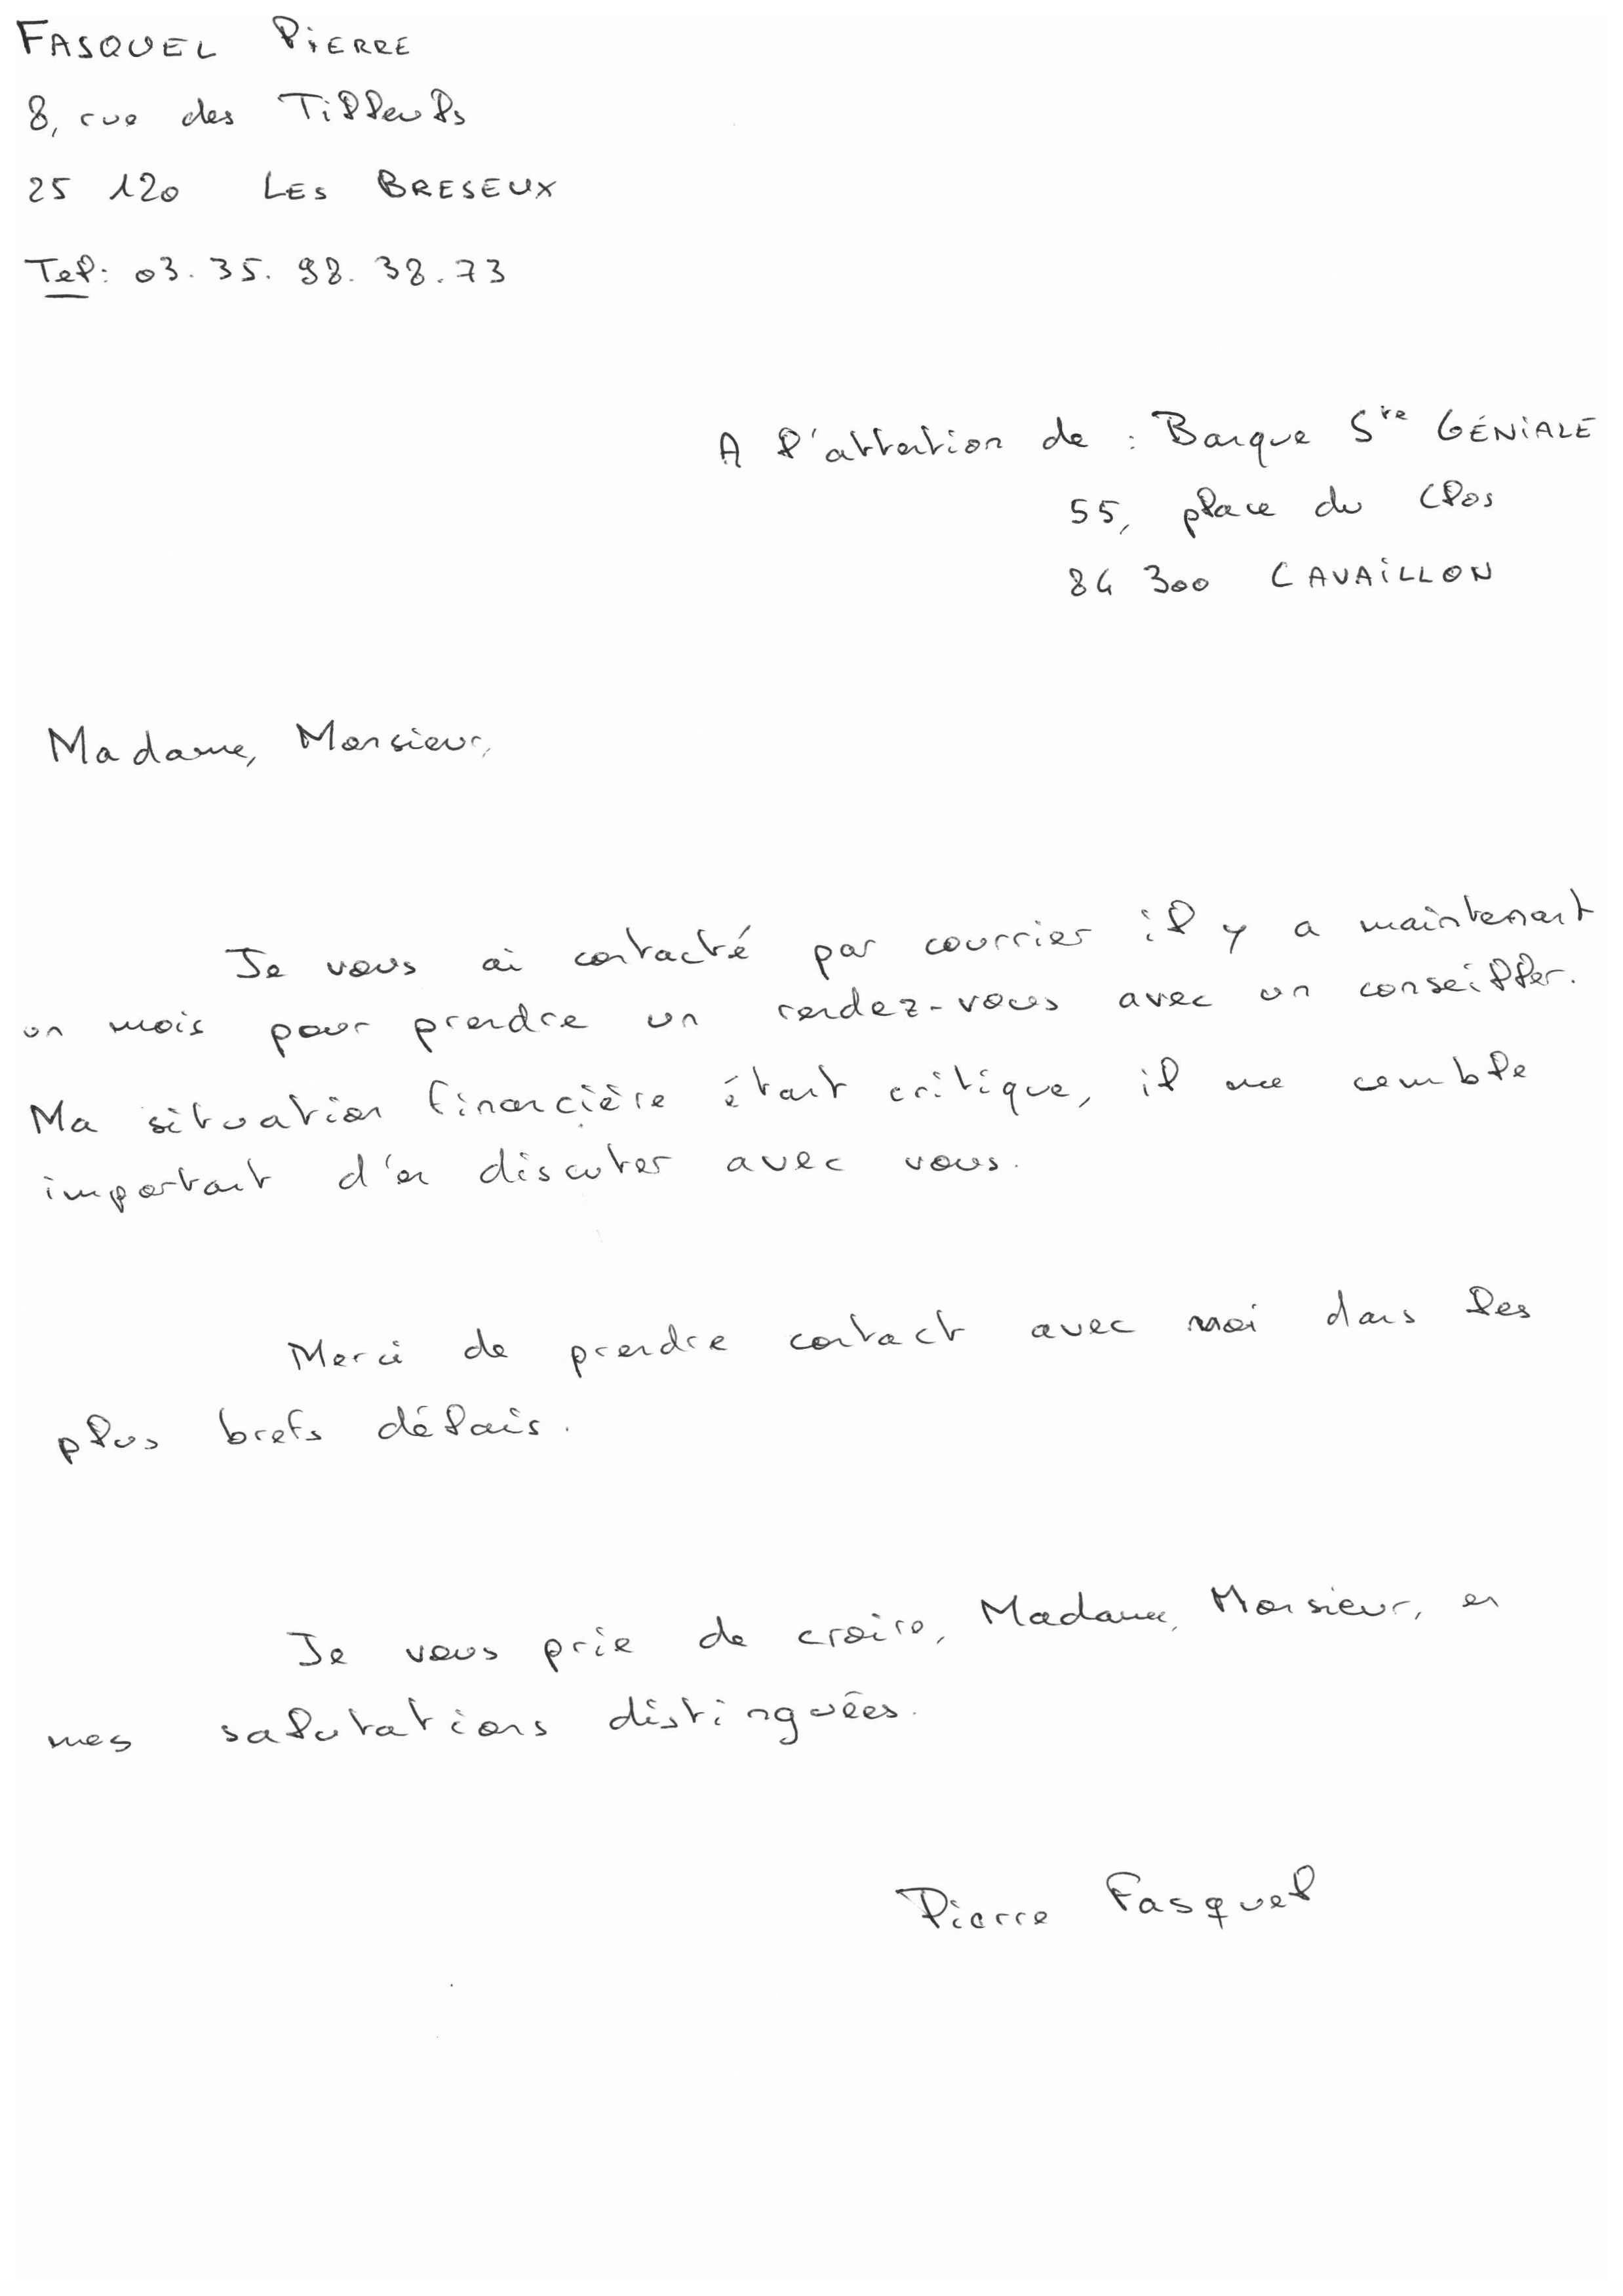 FASQUEL PIERRE
8, rue des Tilleuls
25 120 LES BRESEUX
Tel: 03.35.98.38.73
A l'attention de : Banque Ste GÉNIALE
55, place du Clos
84 300 CAVAILLON
Madame, Monsieur,
Je vous ai contacté par courrier il y a maintenant
un mois pour prendre un rendez-vous avec un conseiller.
Ma situation financière étant critique, il me cemble
important d'en discuter avec vous.
Merci de prendre contact avec moi dans les
plus brefs délais.
Je vous prie de croire, Madame, Monsieur, en
mes salutations distinguées.
Pierre Fasquel